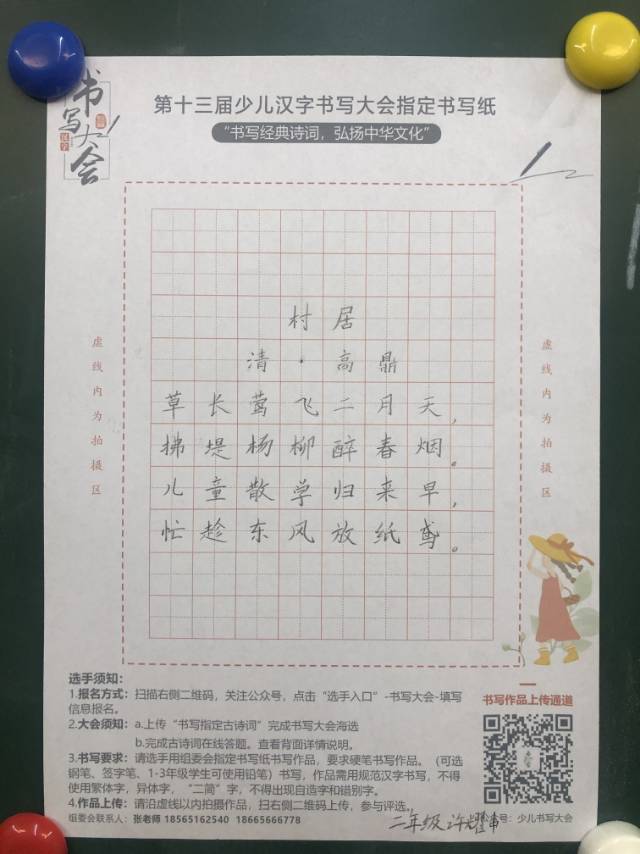 书写大会
汉字
第十三届少儿汉字书写大会指定书写纸
“书写经典诗词，弘扬中华文化”
村居
清·高鼎
草长莺飞二月天，
拂堤杨柳醉春烟。
儿童散学归来早，
忙趁东风放纸鸢。
虚线内为拍摄区
虚线内为拍摄区
选手须知：
1.报名方式：扫描右侧二维码，关注公众号，点击“选手入口”-书写大会-填写
信息报名。
2.大会须知：a.上传“书写指定古诗词”完成书写大会海选
b.完成古诗词在线答题。查看背面详情说明。
3.书写要求：请选手用组委会指定书写纸书写作品，要求硬笔书写作品。（可选
钢笔、签字笔、1-3年级学生可使用铅笔）书写，作品需用规范汉字书写，不得
使用繁体字，异体字，“二简”字，不得出现自造字和错别字。
4.作品上传：请沿虚线以内拍摄作品，扫右侧二维码上传，参与评选。
组委会联系人：张老师 18565162540 18665666778
书写作品上传通道
二年级 许耀
号：少儿书写大会